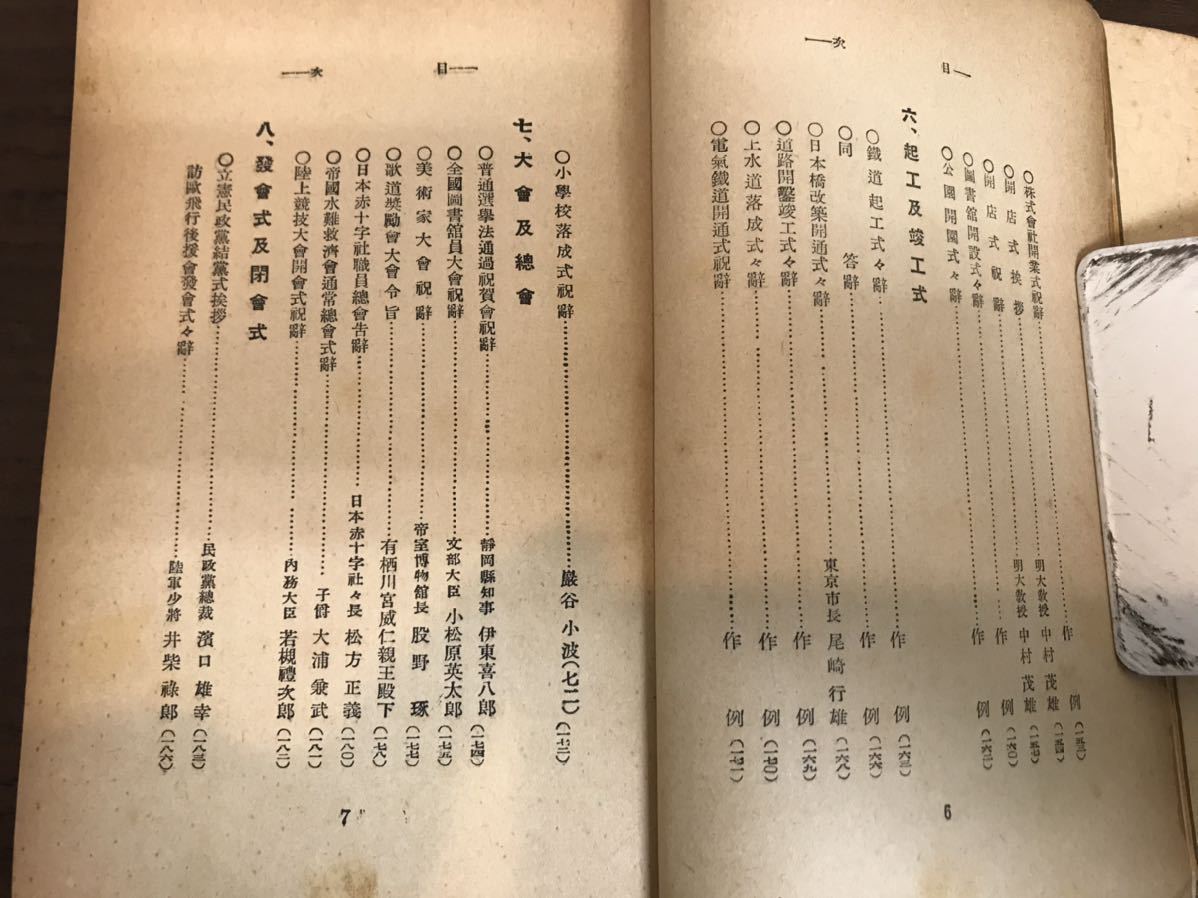 目――次
〇株式會社開業式祝辭……作例(一五三)
〇開店式挨拶……明大敎授 中村茂雄(一五四)
〇開店式祝辭……明大敎授 中村茂雄(一五七)
〇圖書館開設式々辭……作例(一六〇)
〇公園開園式々辭……作例(一六二)
六、起工及竣工式
〇鐵道起工式々辭……作例(一六三)
〇同答辭……作例(一六六)
〇日本橋改築開通式々辭……東京市長 尾崎行雄(一六八)
〇道路開鑿竣工式々辭……作例(一六九)
〇上水道落成式々辭……作例(一七〇)
〇電氣鐵道開通式祝辭……作例(一七一)
6
目――次
〇小學校落成式祝辭……巖谷小波(七二)(一七二)
七、大會及總會
〇普通選擧法通過祝賀會祝辭……靜岡縣知事 伊東喜八郎(一七四)
〇全國圖書館員大會祝辭……文部大臣 小松原英太郎(一七五)
〇美術家大會祝辭……帝室博物館長 股野琢(一七七)
〇歌道奬勵會大會令旨……有栖川宮威仁親王殿下(一七八)
〇日本赤十字社職員總會吿辭……日本赤十字社々長 松方正義(一八〇)
〇帝國水難救濟會通常總會式辭……子爵 大浦兼武(一八一)
〇陸上競技大會開會式祝辭……內務大臣 若槻禮次郎(一八二)
八、發會式及閉會式
〇立憲民政黨結黨式挨拶……民政黨總裁 濱口雄幸(一八三)
訪歐飛行後援會發會式々辭……陸軍少將 井柴祿郎(一八六)
7